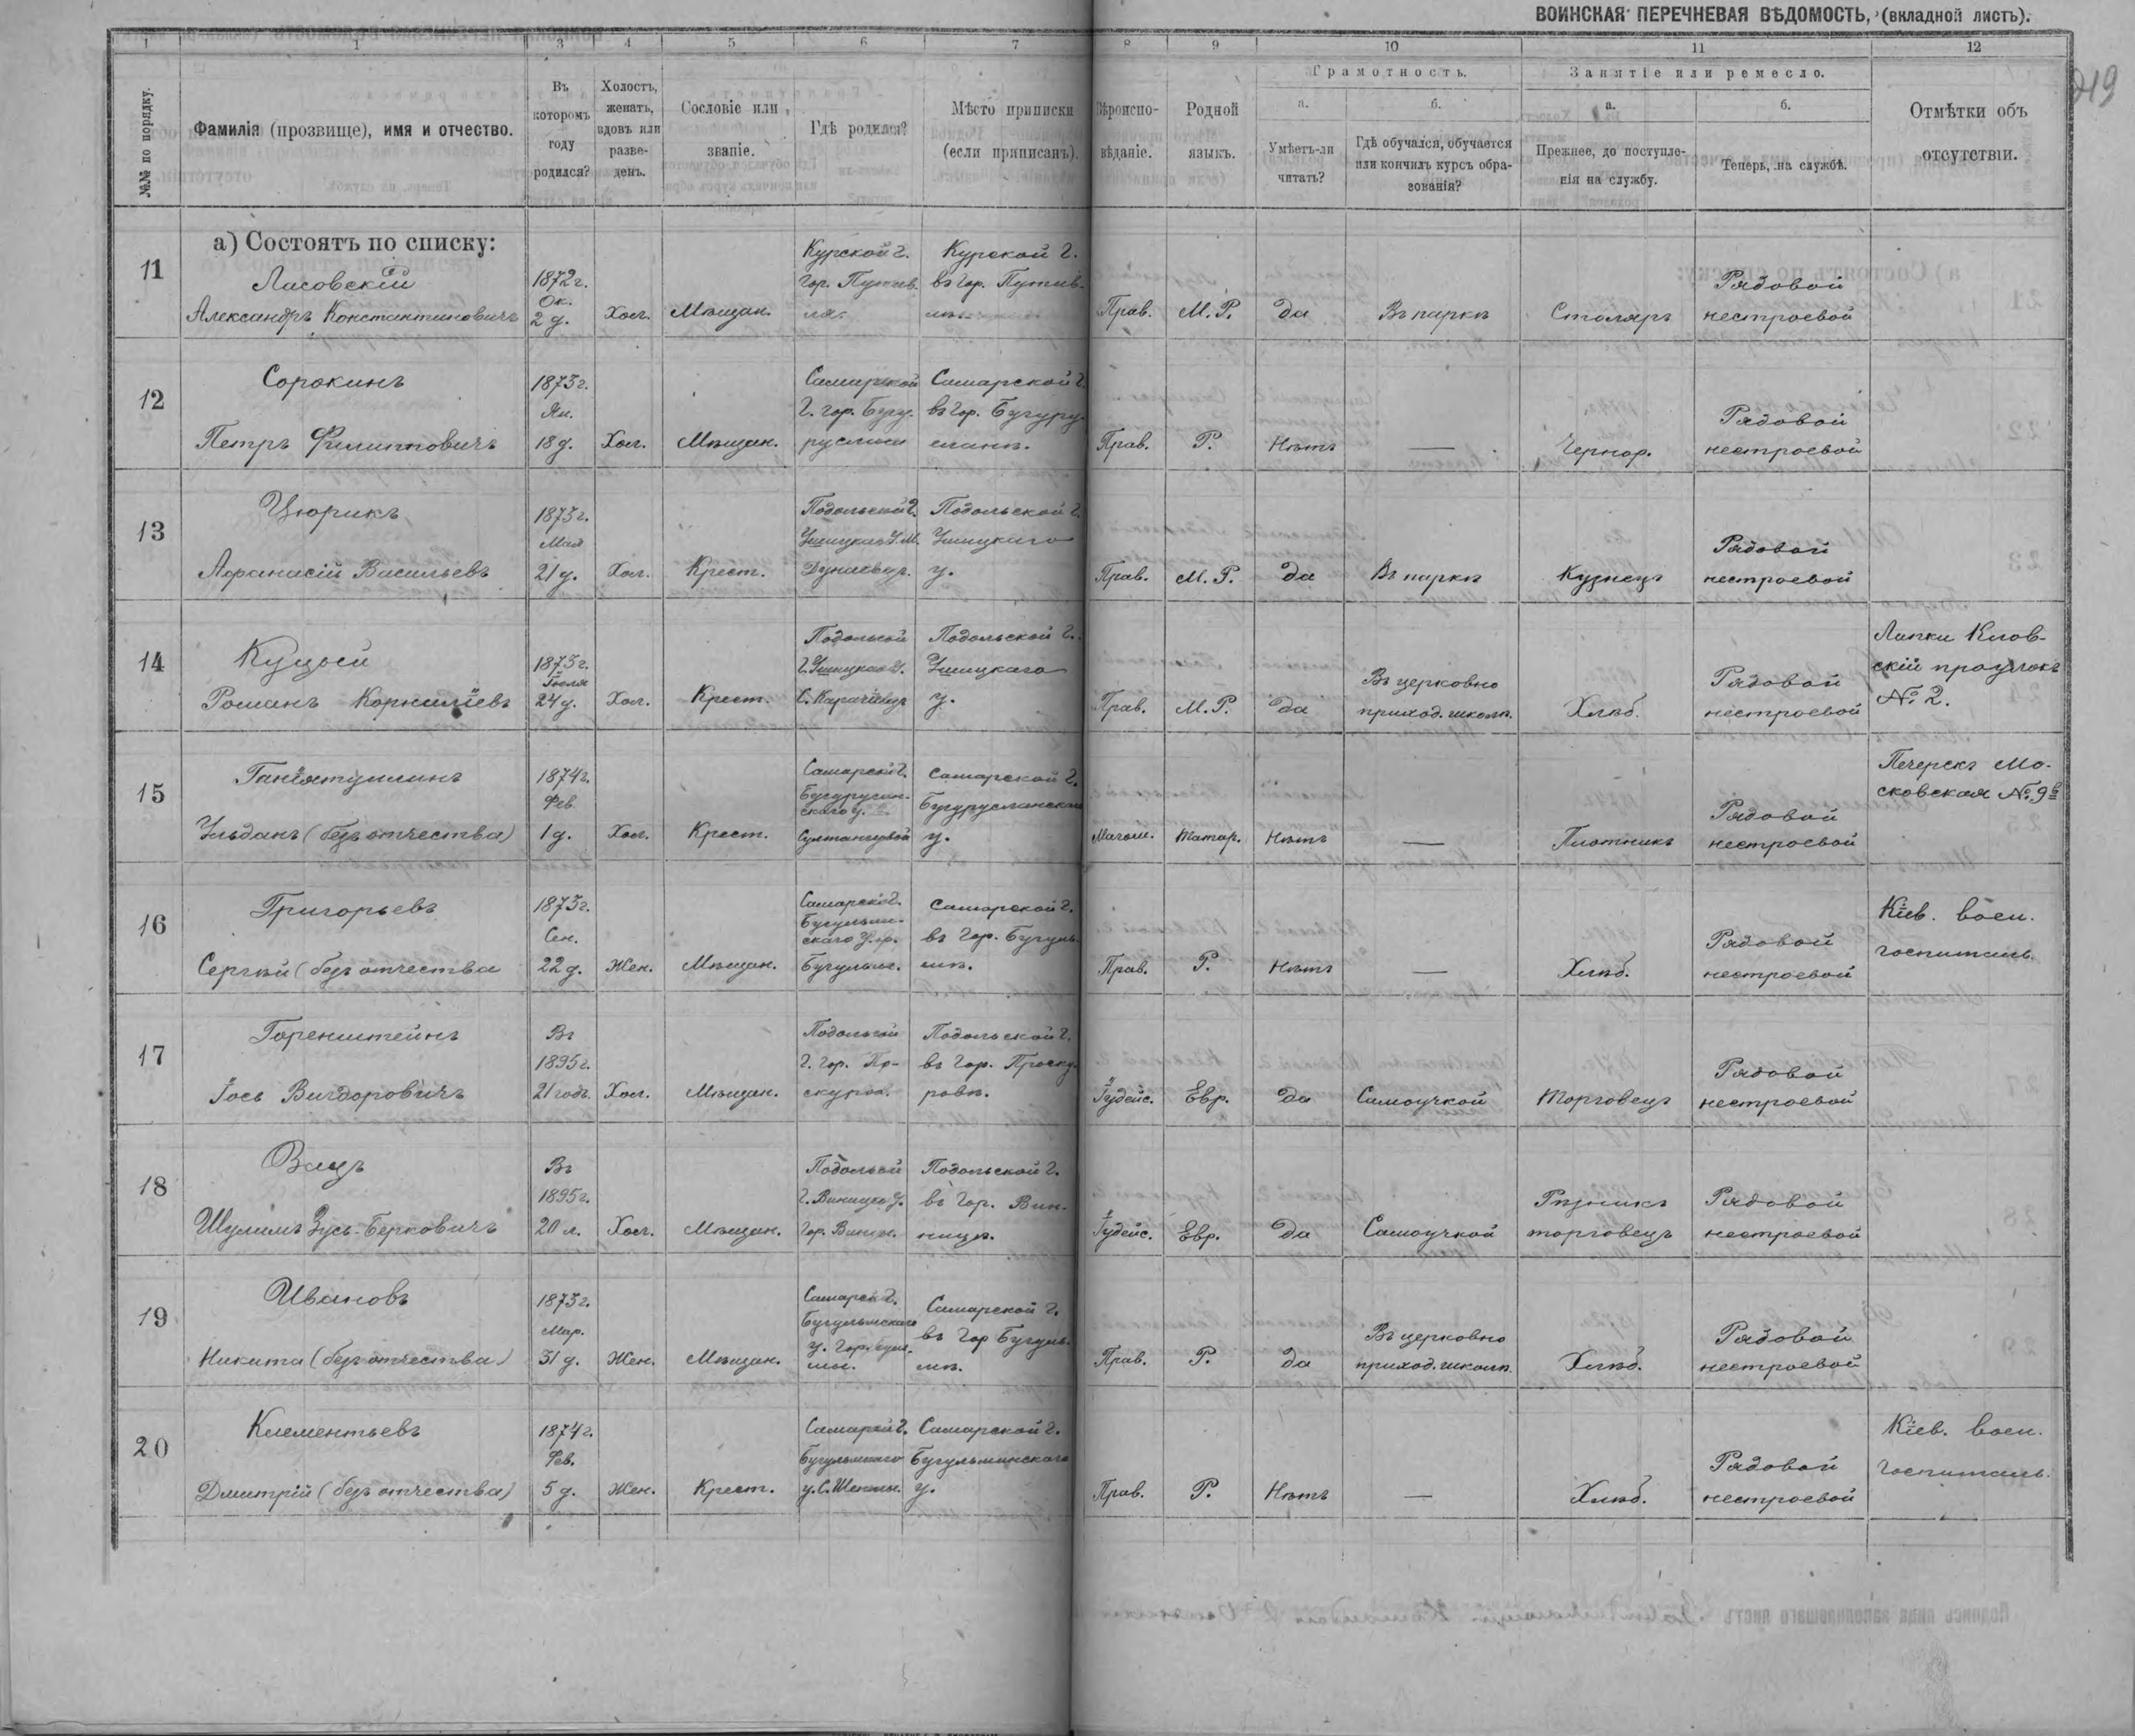 ВОИНСКАЯ ПЕРЕЧНЕВАЯ ВѢДОМОСТЬ, (вкладной листъ).
219
1 1 3 4 5 6 7 8 9 10 11 12
№№ по порядку.
Фамилія (прозвище), имя и отчество.
Въ которомъ году родился?
Холостъ, женатъ, вдовъ или разве-денъ.
Сословіе или званіе.
Гдѣ родился?
Мѣсто приписки (если приписанъ).
Вѣроиспо-вѣданіе.
Родной языкъ.
Грамотность.
а.
Умѣетъ-ли читать?
б.
Гдѣ обучался, обучается или кончилъ курсъ обра-зованія?
Занятіе или ремесло.
а.
Прежнее, до поступле-нія на службу.
б.
Теперь, на службѣ.
Отмѣтки объ отсутствіи.
а) Состоятъ по списку:
11
Лисовскій
Александръ Константиновичъ
1872 г.
Ок.
2 д.
Хол.
Мѣщан.
Курской г.
гор. Путив-
ля.
Курской г.
въ гор. Путив-
лѣ.
Прав.
М. Р.
да
Въ паркѣ
Столяръ
Рядовой
нестроевой
12
Сорокинъ
Петръ Филипповичъ
1873 г.
Ян.
18 д.
Хол.
Мѣщан.
Самарской
г. гор. Бугу-
руслан
Самарской г.
въ гор. Бугуру-
сланѣ.
Прав.
Р.
Нѣтъ
—
Чернор.
Рядовой
нестроевой
13
Цюрикъ
Афанасій Васильевъ
1873 г.
Мая
21 д.
Хол.
Крест.
Подольской г.
Ушицкаго у. м.
Дунаевцы.
Подольской г.
Ушицкаго
у.
Прав.
М. Р.
да
Въ паркѣ
Кузнецъ
Рядовой
нестроевой
14
Куцый
Романъ Корниліевъ
1873 г.
Іюля
24 д.
Хол.
Крест.
Подольской
г. Ушицкаго у.
Подольской г.
Ушицкаго
у.
Прав.
М. Р.
да
Въ церковно
приход. школѣ.
Хлѣб.
Рядовой
нестроевой
Липки Клов-
скій проулокъ
№ 2.
15
Ганіятуллинъ
Ульданъ (безъ отчества)
1874 г.
Фев.
1 д.
Хол.
Крест.
Самарской г.
Бугуруслан-
скаго у.
Самарской г.
Бугурусланскаго
у.
Магом.
Татар.
Нѣтъ
—
Плотникъ
Рядовой
нестроевой
Печерскъ Мо-
сковская № 9
16
Григорьевъ
Сергѣй (безъ отчества
1873 г.
Сен.
22 д.
Жен.
Мѣщан.
Самарской г.
Бугульмин-
скаго у. гор.
Бугульмы.
Самарской г.
въ гор. Бугуль-
мѣ.
Прав.
Р.
Нѣтъ
—
Хлѣб.
Рядовой
нестроевой
Кіев. воен.
госпиталь.
17
Горенштейнъ
Іось Вигдоровичъ
Въ
1895 г.
21 годъ.
Хол.
Мѣщан.
Подольской
г. гор. Пр-
скуров.
Подольской г.
въ гор. Проску-
ровѣ.
Іудейс.
Евр.
да
Самоучкой
Торговецъ
Рядовой
нестроевой
18
Вацъ
Шулимъ Зусь-Берковичъ
Въ
1895 г.
20 л.
Хол.
Мѣщан.
Подольской
г. Виницко у.
гор. Виницы.
Подольской г.
въ гор. Вин-
ницѣ.
Іудейс.
Евр.
да
Самоучкой
Рѣзникъ
торговецъ
Рядовой
нестроевой
19
Ивановъ
Никита (безъ отчества)
1873 г.
Мар.
31 д.
Жен.
Мѣщан.
Самарск г.
Бугульмскаго
Самарской г.
въ гор Бугуль-
мѣ.
Прав.
Р.
да
Въ церковно
приход. школѣ.
Хлѣб.
Рядовой
нестроевой
20
Клементьевъ
Дмитрій (безъ отчества)
1874 г.
Фев.
5 д.
Жен.
Крест.
Самарской г.
у. С. Шенталы.
Самарской г.
Бугульминскаго
у.
Прав.
Р.
Нѣтъ
—
Хлѣб.
Рядовой
нестроевой
Кіев. воен.
госпиталь.